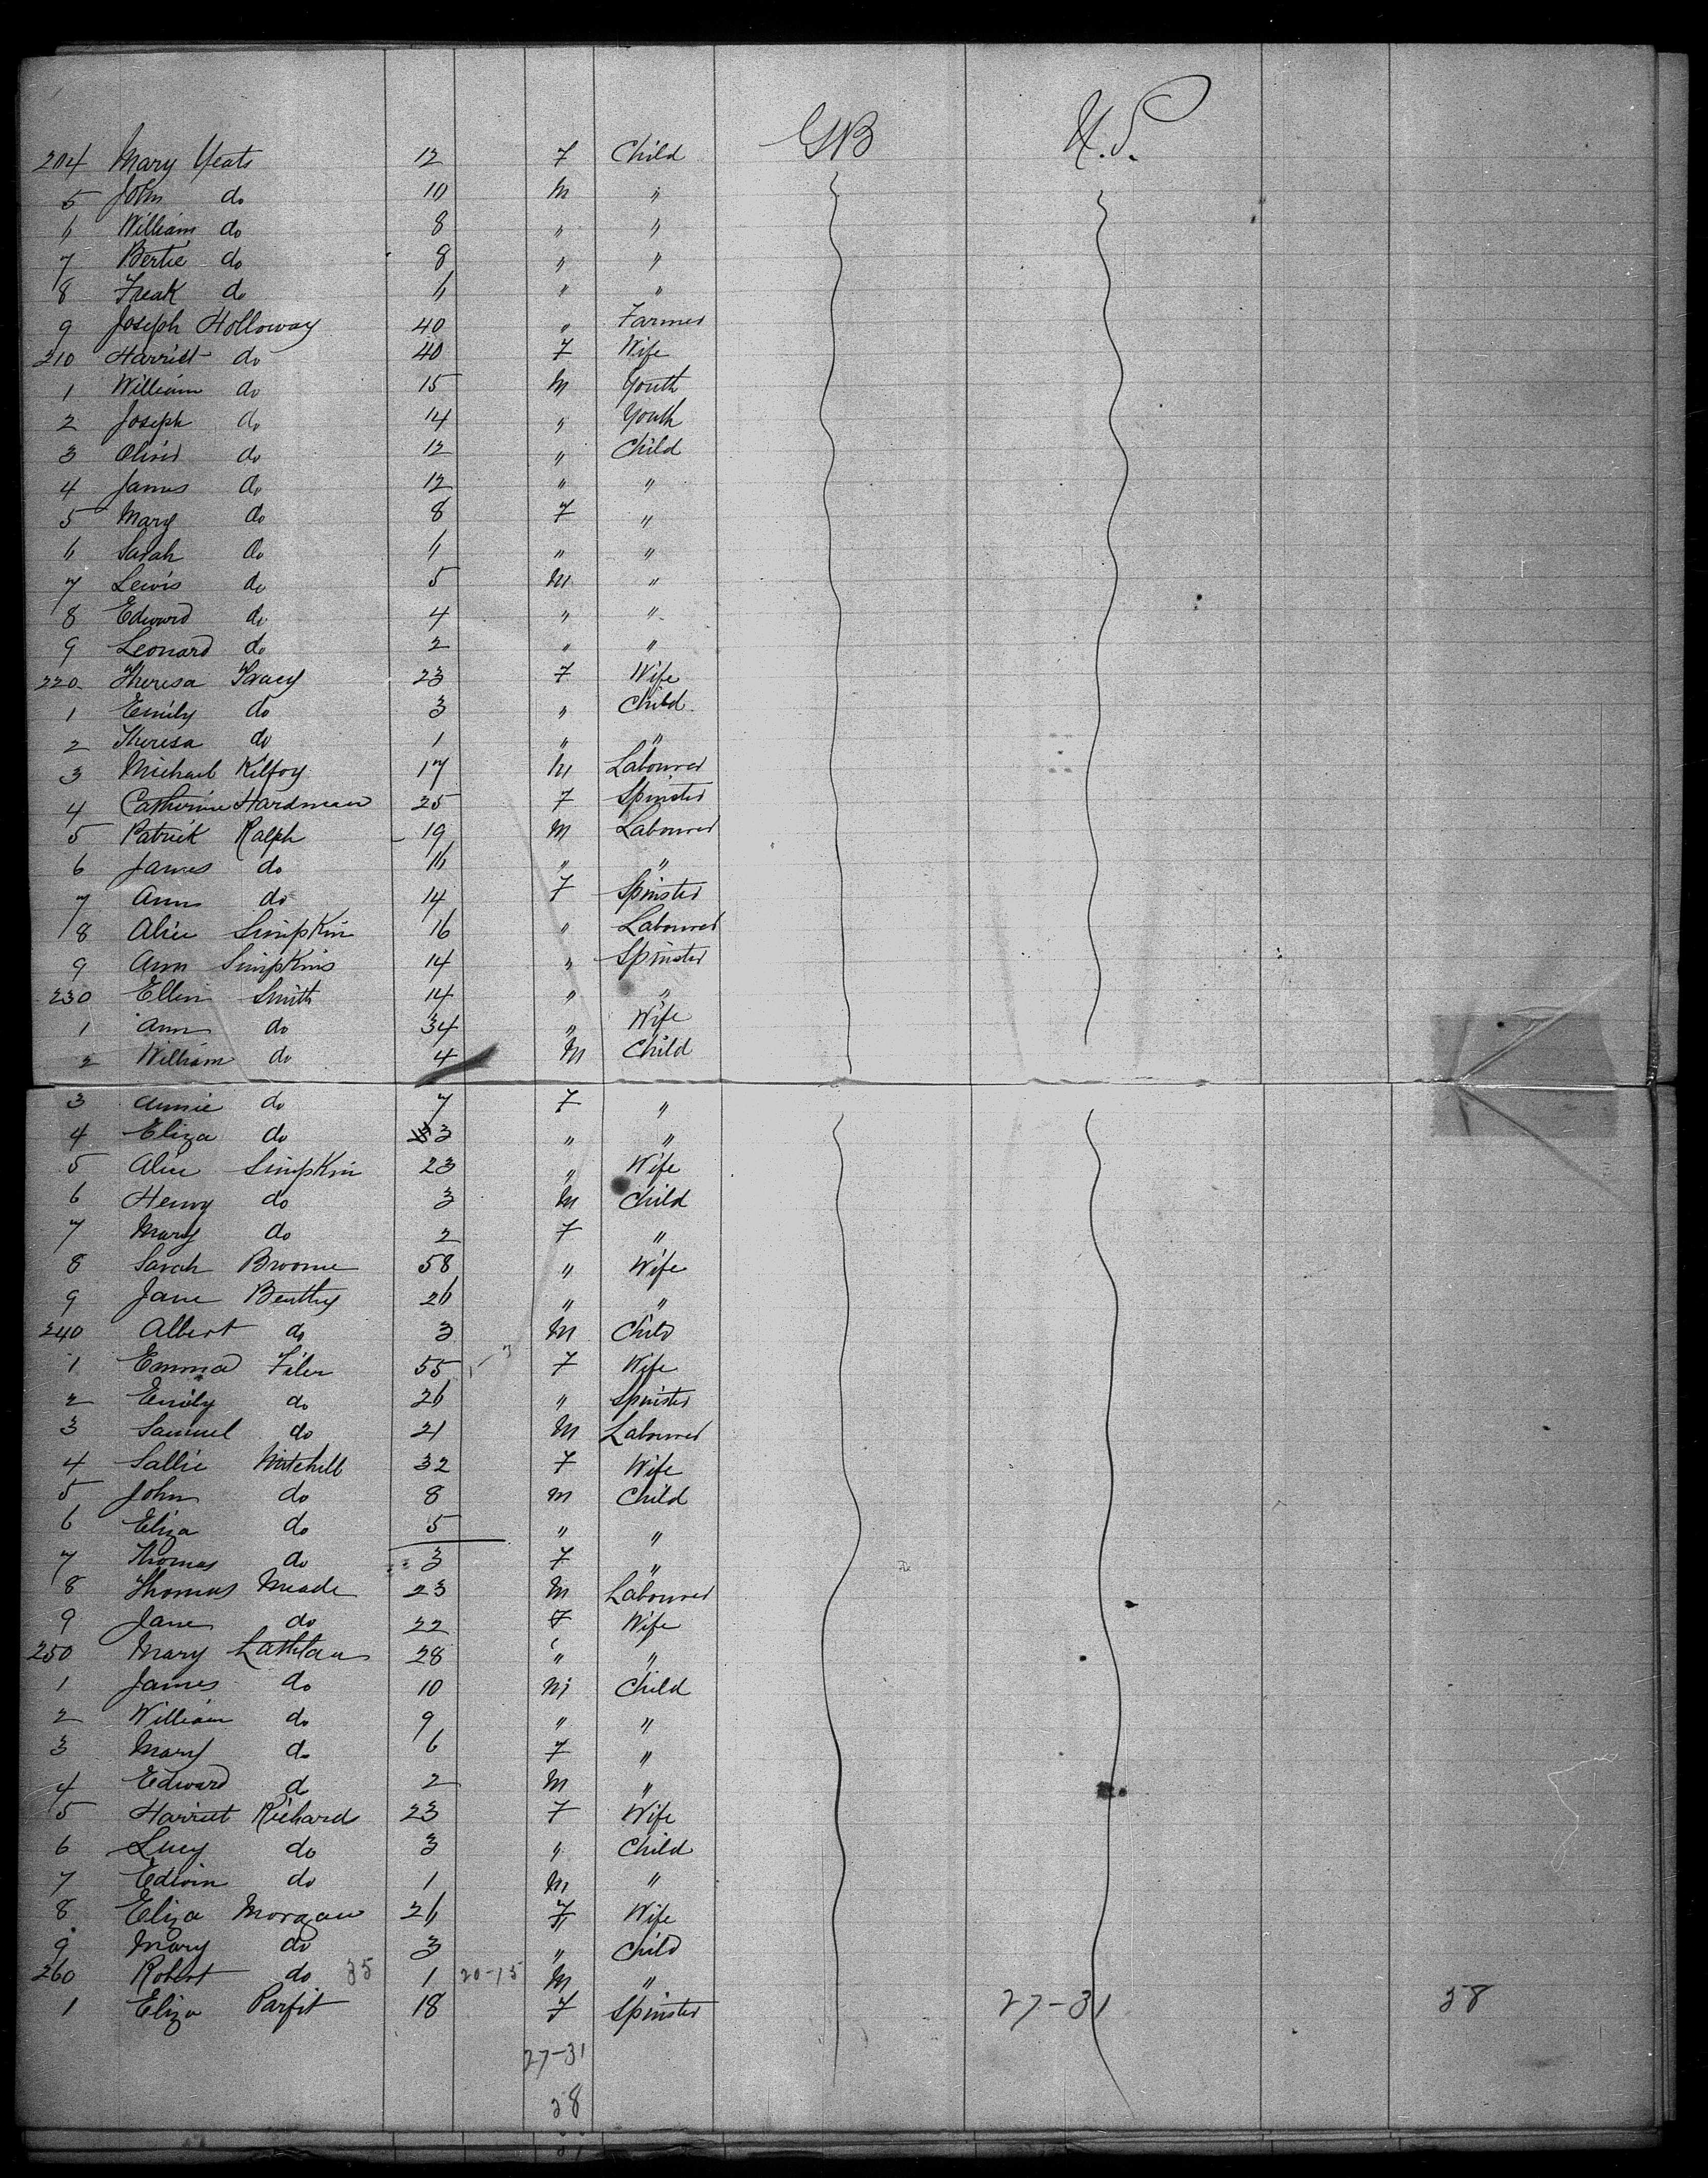 204 Mary Yeats 12 F Child GB U.S.
5 John do 10 M "
6 William do 8 " "
7 Bertie do 8 " "
8 Freak do 6 " "
9 Joseph Holloway 40 " Farmer
210 Harriet do 40 F Wife
1 William do 15 M Youth
2 Joseph do 14 " Youth
3 Oliver do 12 " Child
4 James do 12 " "
5 Mary do 8 F "
6 Sarah do 6 " "
7 Lewis do 5 M "
8 Edward do 4 " "
9 Leonard do 2 " "
220 Theresa Tracy 23 F Wife
1 Emily do 3 " Child
2 Theresa do 1 " "
3 Michael Kilfoy 17 M Labourer
4 Catherine Hardman 25 F Spinster
5 Patrick Ralph 19 M Labourer
6 James do 16 " "
7 Ann do 14 F Spinster
8 Alice Simpkin 16 " Labourer
9 Ann Simpkins 14 " Spinster
230 Ellen Smith 14 " "
1 Ann do 34 " Wife
2 William do 4 M Child
3 Annie do 7 F "
4 Eliza do 3 " "
5 Alice Simpkin 23 " Wife
6 Henry do 3 M Child
7 Mary do 2 F "
8 Sarah Broome 58 " Wife
9 Jane Benthy 26 " "
240 Albert do 3 M Child
1 Emma Filer 55 F Wife
2 Emily do 26 " Spinster
3 Samuel do 21 M Labourer
4 Sallie Mitchell 32 F Wife
5 John do 8 M Child
6 Eliza do 5 " "
7 Thomas do 3 F "
8 Thomas Meade 23 M Labourer
9 Jane do 22 F Wife
250 Mary 28 " "
1 James do 10 M Child
2 William do 9 " "
3 Mary do 6 F "
4 Edward d 2 M "
5 Harriet Richard 23 F Wife
6 Lucy do 3 " Child
7 Edwin do 1 M "
8 Eliza Morgan 26 F Wife
9 Mary do 3 " Child
260 Robert do 35 1 20-15 M "
1 Eliza Parfit 18 F Spinster 27-31 58
27-31
58